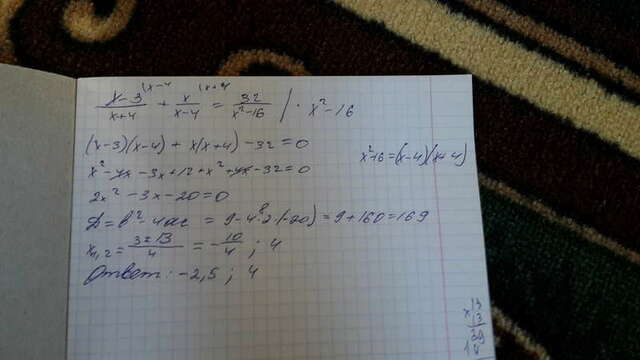 x-3/x+4 |x-4 + x/x-4 |x+4 = 32/x²-16 / · x²-16
(x-3)(x-4) + x(x+4) - 32 = 0
x²-16=(x-4)(x+4)
x² - 4x - 3x + 12 + x² + 4x - 32 = 0
2x² - 3x - 20 = 0
D = b² - 4ac = 9 - 4·2·(-20) = 9 + 160 = 169
x1,2 = 3±13/4 = -10/4 ; 4
Ответ: -2,5 ; 4